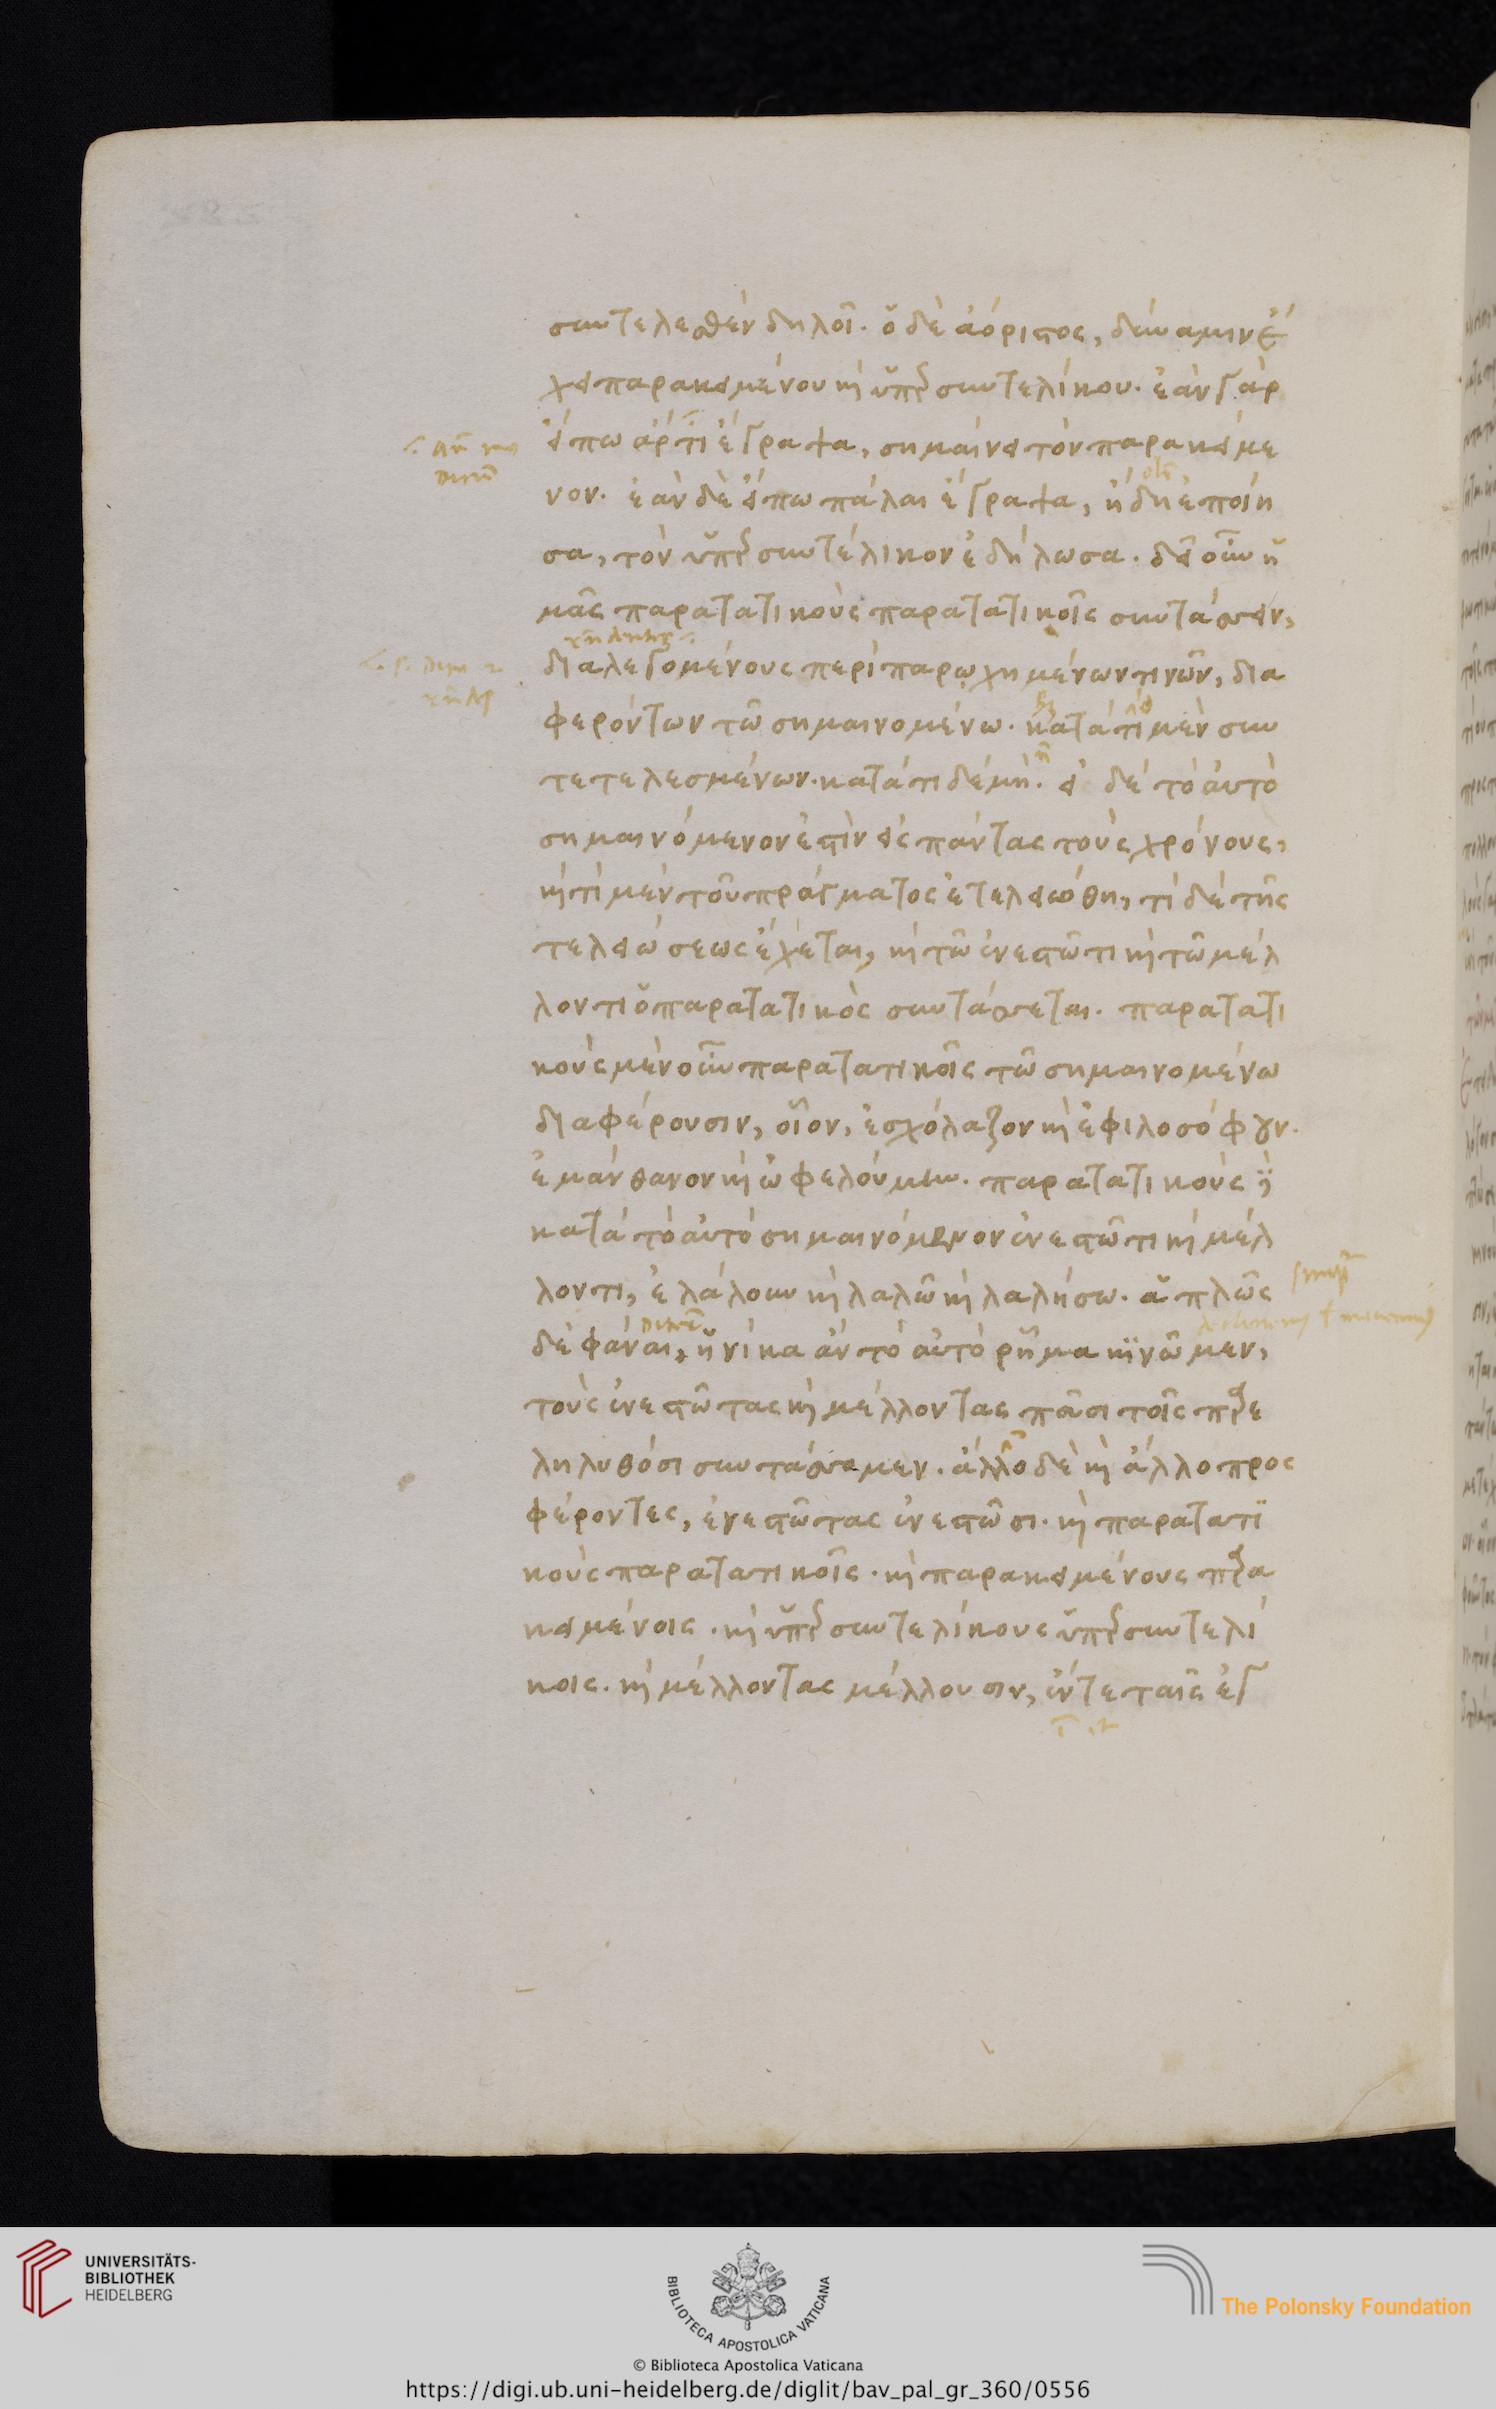 συντελεσθὲν δηλοῖ. ὁ δὲ ἀόριστος, δύναμιν ἔ
χει παρακειμένου καὶ ὑπερσυντελίκου. ἐὰν γὰρ
εἴπω ἄρτι ἔγραψα, σημαίνει τὸν παρακείμε
νον. ἐὰν δὲ εἴπω πάλαι ἔγραψα, ἢ δὴ ἐποίη
σα, τὸν ὑπερσυντέλικον ἐδήλωσα. δεῖ οὖν ἡ
μᾶς παρατατικοὺς παρατατικοῖς συντάσσειν,
διαλεγομένους περὶ παρῳχημένων τινῶν, δια
φερόντων τῶ σημαινομένω. κατά τι μὲν συν
τετελεσμένων. κατά τι δὲ μή. εἰ δὲ τὸ αὐτὸ
σημαινόμενον ἐστὶν εἰς πάντας τοὺς χρόνους,
καὶ τὶ μὲν τοῦ πράγματος ἐτελειώθη, τὶ δὲ τῆς
τελειώσεως ἔχεται, καὶ τῶ ἐνεστῶτι καὶ τῶ μέλ
λοντι ὁ παρατατικὸς συντάσσεται. παρατατι
κοὺς μὲν οὖν παρατατικοῖς τῶ σημαινομένω
διαφέρουσιν, οἷον, ἐσχόλαζον καὶ ἐφιλοσόφουν.
ἐμάνθανον καὶ ὠφελούμην. παρατατικοὺς δὲ
κατὰ τὸ αὐτὸ σημαινόμενον ἐνεστῶτι καὶ μέλ
λοντι, ἐλάλουν καὶ λαλῶ καὶ λαλήσω. ἁπλῶς
δὲ φάναι, ἡνίκα ἂν τὸ αὐτὸ ῥῆμα κινῶμεν,
τοὺς ἐνεστῶτας καὶ μέλλοντας πᾶσι τοῖς παρε
ληλυθόσι συντάσσομεν. ἄλλο δὲ καὶ ἄλλο προς
φέροντες, ἐνεστῶτας ἐνεστῶσι. καὶ παρατατι
κοὺς παρατατικοῖς. καὶ παρακειμένους παρα
κειμένοις. καὶ ὑπερσυντελίκους ὑπερσυντελί
κοις. καὶ μέλλοντας μέλλουσιν, ἔν τε ταῖς ἐγ
UNIVERSITÄTS-
BIBLIOTHEK
HEIDELBERG
BIBLIOTECA APOSTOLICA VATICANA
The Polonsky Foundation
© Biblioteca Apostolica Vaticana
https://digi.ub.uni-heidelberg.de/diglit/bav_pal_gr_360/0556